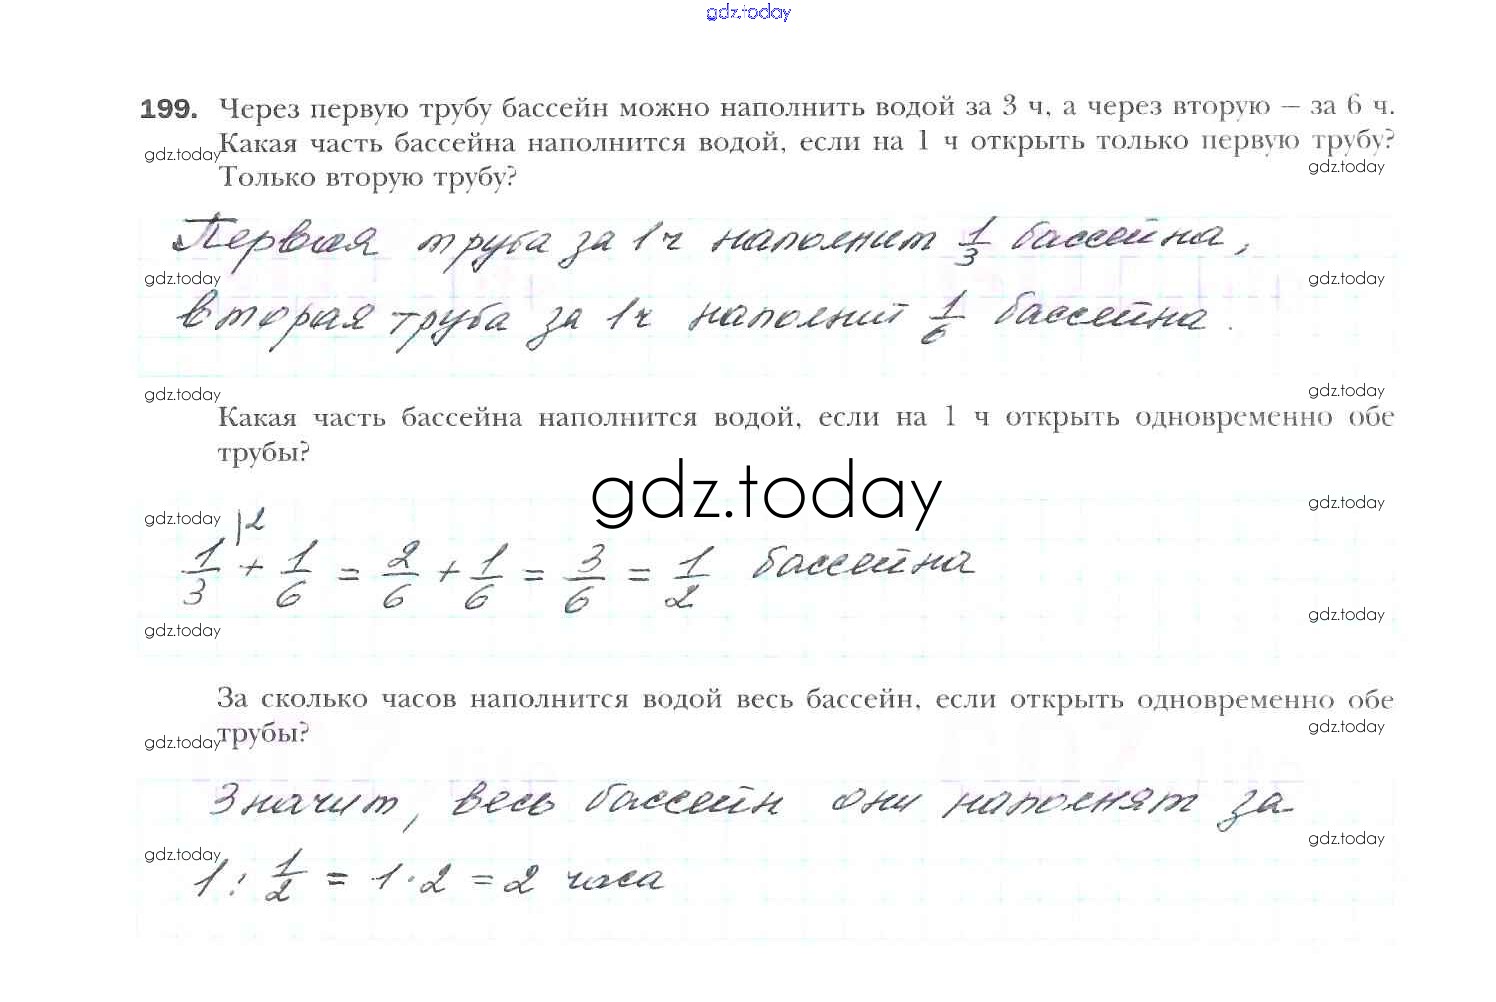 gdz.today
199. Через первую трубу бассейн можно наполнить водой за 3 ч, а через вторую — за 6 ч.
Какая часть бассейна наполнится водой, если на 1 ч открыть только первую трубу?
gdz.today
gdz.today
Только вторую трубу?
Первая труба за 1 ч наполнит 1/3 бассейна,
gdz.today
gdz.today
вторая труба за 1 ч наполнит 1/6 бассейна.
gdz.today
gdz.today
Какая часть бассейна наполнится водой, если на 1 ч открыть одновременно обе
трубы?
gdz.today
gdz.today
gdz.today
|2
1/3 + 1/6 = 2/6 + 1/6 = 3/6 = 1/2 бассейна
gdz.today
gdz.today
За сколько часов наполнится водой весь бассейн, если открыть одновременно обе
трубы?
gdz.today
gdz.today
Значит, весь бассейн они наполнят за
gdz.today
gdz.today
1 : 1/2 = 1 · 2 = 2 часа